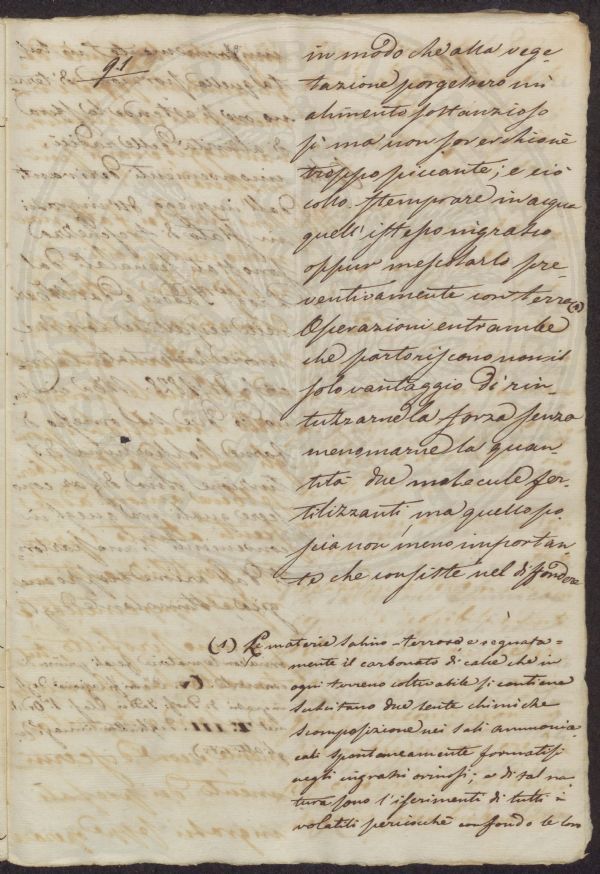 91
in modo che alla vege-
tazione porgessero un
alimento sostanzioso
sì ma non soverchio nè
troppo piccante; e ciò
collo stemprare in acqua
quell'istesso ingrasso
oppur mescolarlo pre-
ventivamente con terre (1)
Operazioni entrambe
che partoriscono non il
solo vantaggio di rin-
tuzzarne la forza senza
menomarne la quan-
tità due molecule fer-
tilizzanti, ma quello po-
scia non meno importan-
te che consiste nel diffondere
(1) Le materie salino-terrose e segnata-
mente il carbonato di calce che in
ogni terreno coltivabile si contiene
suscitano due lente chimiche
scomposizione nei sali ammonia-
cali spontaneamente formatisi
negli ingrassi orinosi; e di tal na-
tura sono l' di tutti i
volatili perciocchè confondo le loro